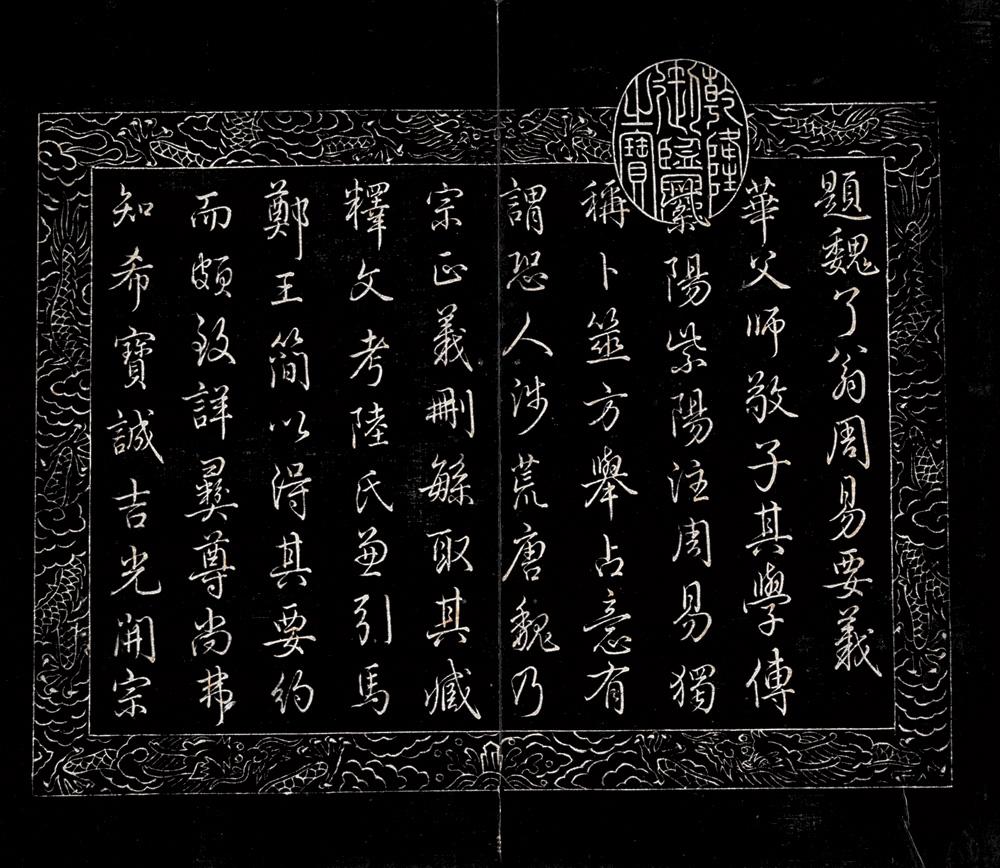 乾隆
御覽
之寶
題魏了翁周易要義
華父師敬子其學傳
紫陽紫陽注周易獨
稱卜筮方舉占意有
謂恐人涉荒唐魏乃
宗正義刪緐取其臧
釋文考陸氏兼引馬
鄭王簡以得其要約
而頗致詳彞尊尚弗
知希寶誠吉光開宗